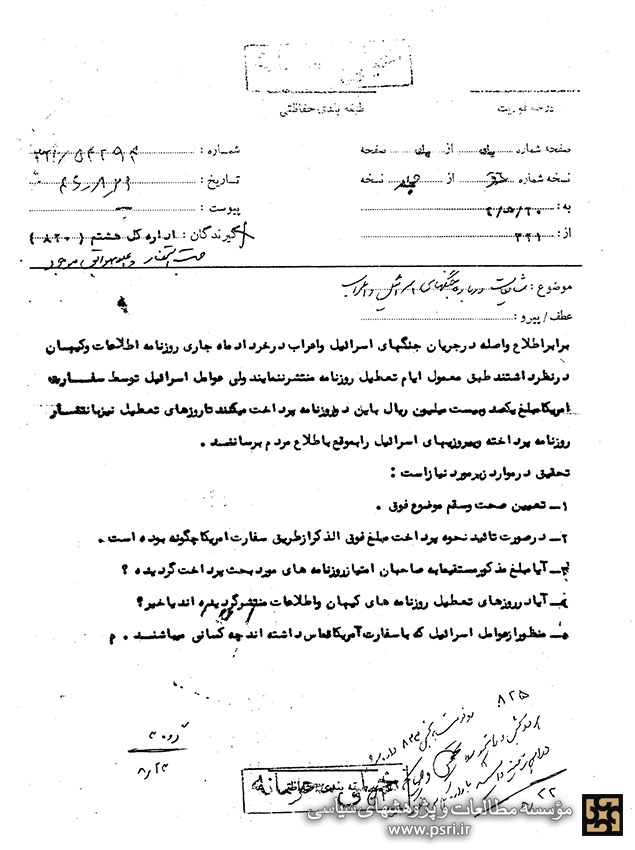 درجه فوریت
طبقه بندی حفاظتی
صفحه شماره از صفحه
شماره :
نسخه شماره از نسخه
تاریخ :
به :
پیوست :
از : ۳۲۱
گیرندگان : اداره کل هشتم ( ۸۲۰ )
موضوع : شایعات درباره جنگهای اسرائیل و اعراب
عطف / پیرو :
برابر اطلاع واصله در جریان جنگهای اسرائیل و اعراب در خرداد ماه جاری روزنامه اطلاعات و کیهان
در نظر داشتند طبق معمول ایام تعطیل روزنامه منتشر ننمایند ولی عوامل اسرائیل توسط سفارت
امریکا مبلغ یکصد و بیست ملیون ریال باین دو روزنامه پرداخت میکنند تا روزهای تعطیل نیز بانتشار
روزنامه پرداخته و پیروزیهای اسرائیل را بموقع باطلاع مردم برسانند .
تحقیق در موارد زیر مورد نیاز است :
۱ــ تعیین صحت و سقم موضوع فوق .
۲ــ در صورت تائید نحوه پرداخت مبلغ فوق الذکر از طریق سفارت امریکا چگونه بوده است .
۳ــ آیا مبلغ مذکور مستقیما به صاحبان امتیاز روزنامه های مورد بحث پرداخت گردیده ؟
۴ــ آیا در روزهای تعطیل روزنامه های کیهان و اطلاعات منتشر گردیده اند یا خیر ؟
۵ــ منظور از عوامل اسرائیل که با سفارت آمریکا تماس داشته اند چه کسانی میباشند . م
۸۲۵
خیلی محرمانه
طبقه بندی حفاظتی
مؤسسه مطالعات و پژوهشهای سیاسی
www.psri.ir